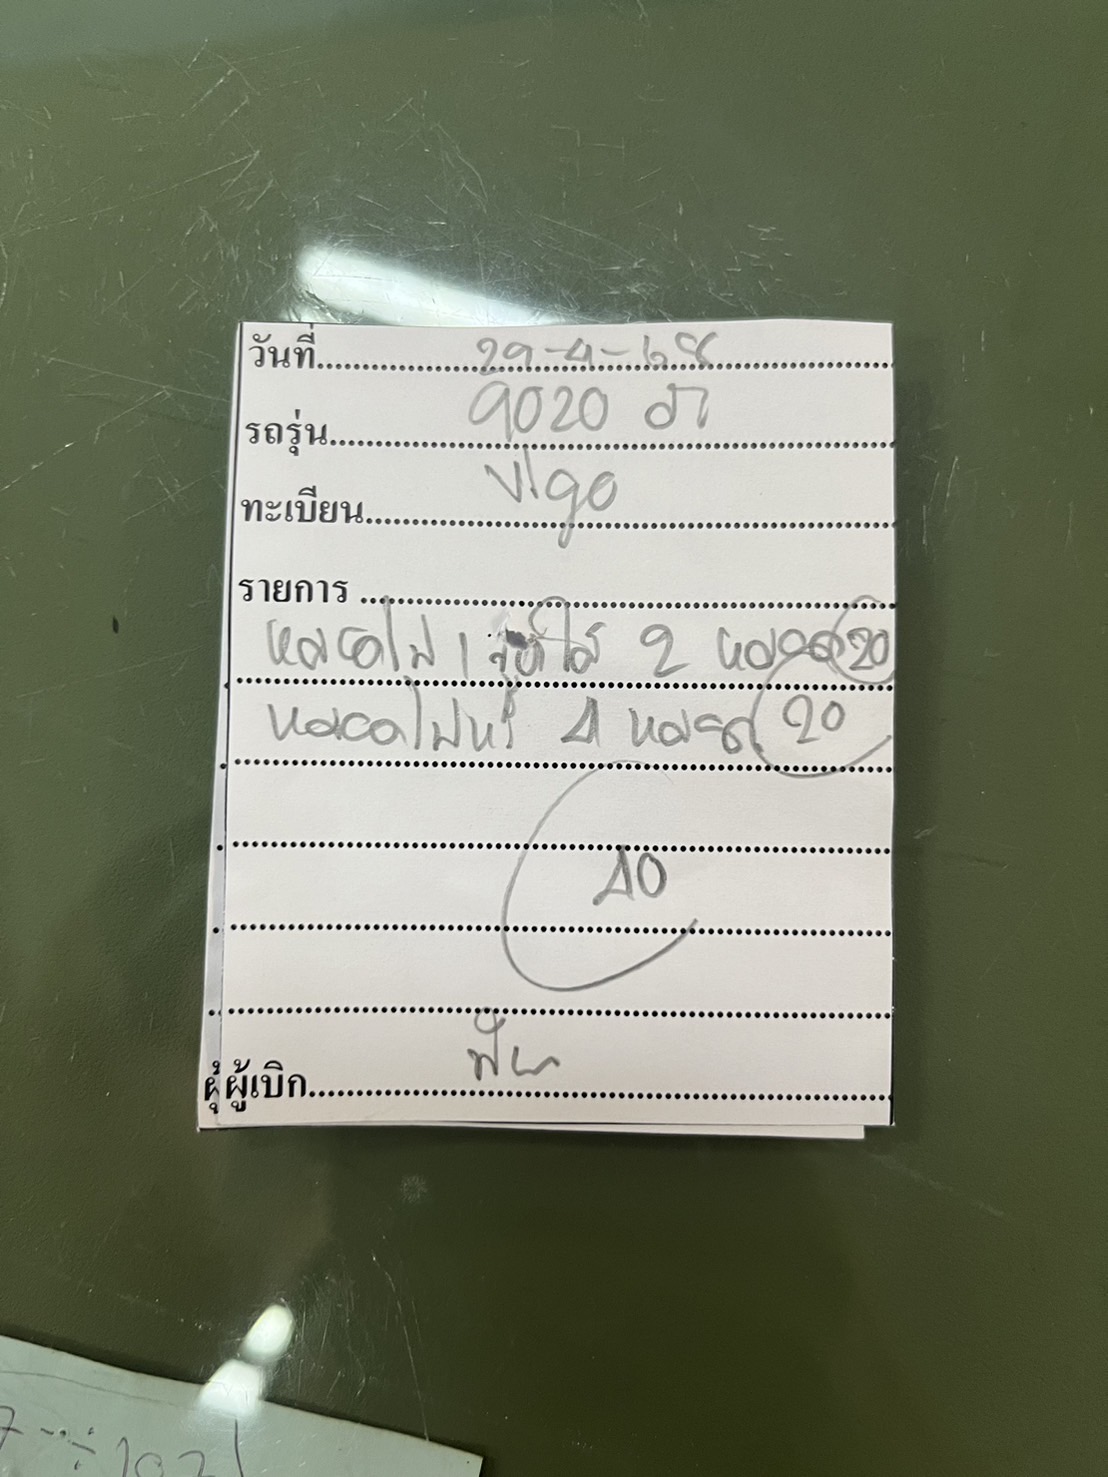 วันที่ 29-4-68
รถรุ่น 9020
ทะเบียน Vigo
รายการ
หลอดไฟ 1 ไส้ 2 หลอด 20
หลอดไฟหรี่ 4 หลอด 20
40
ผู้เบิก